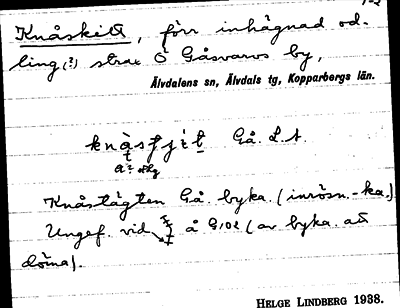 1-2
Knåskitt, förr inhägnad od-
ling(?) strax Ö Gåsvarvs by,
Älvdalens sn, Älvdals tg, Kopparbergs län.
Gå. L.A.
Knåstägten Gå. byka. (inrösn.-ka.)
Ungef. vid å G102 (av byka. att
döma).
HELGE LINDBERG 1938.